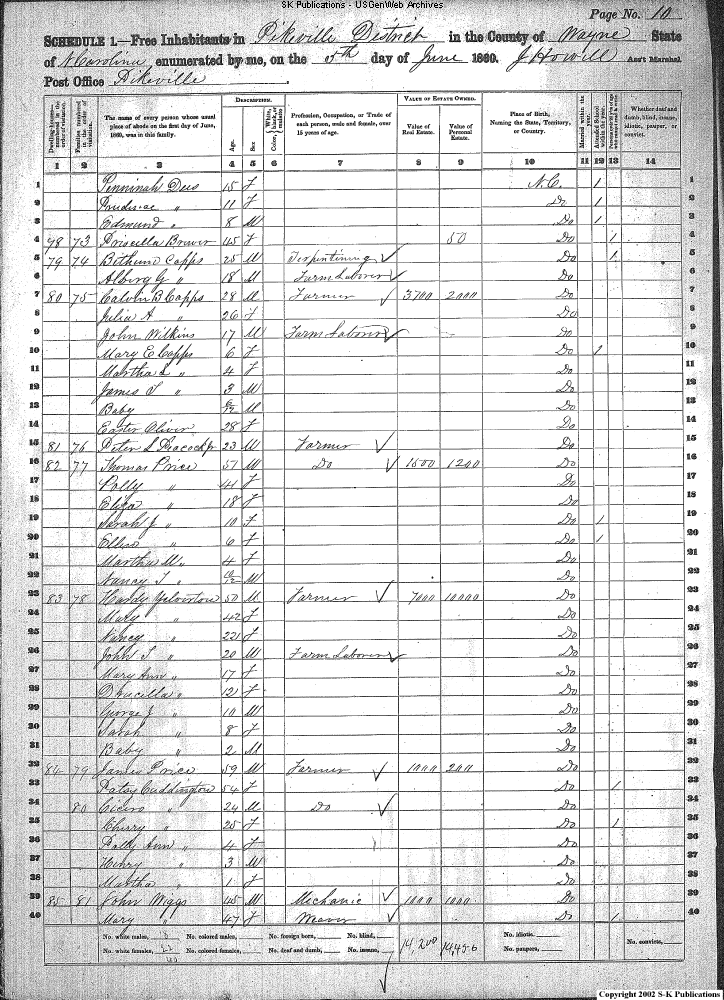 SK Publications - USGenWeb Archives
Page No. 10
SCHEDULE 1.—Free Inhabitants in Pikeville District in the County of Wayne State
of N Carolina enumerated by me, on the 5th day of June 1860. J Howell Ass't Marshal.
Post Office Pikeville
DESCRIPTION. VALUE OF ESTATE OWNED.
Dwelling-houses—numbered in the order of visitation. Families numbered in the order of visitation. The name of every person whose usual place of abode on the first day of June, 1860, was in this family. Age. Sex. Color, White, black, or mulatto. Profession, Occupation, or Trade of each person, male and female, over 15 years of age. Value of Real Estate. Value of Personal Estate. Place of Birth, Naming the State, Territory, or Country. Married within the year. Attended School within the year. Whether deaf and dumb, blind, insane, idiotic, pauper, or convict.
1 2 3 4 5 6 7 8 9 10 11 12 13 14
1 Penninah Dees 15 F N.C. 1 1
2 " 11 F Do 1 2
3 Edmund " 8 M Do 1 3
4 78 73 Priscilla 45 F 50 Do 1 4
5 79 74 Bithune Capps 25 M Do 1 5
6 " 18 M Farm Laborer Do 6
7 80 75 Calvin B Capps 28 M Farmer 3700 2000 Do 7
8 Julia A " 26 F Do 8
9 John Wilkins 17 M Farm Laborer Do 9
10 Mary E Capps 6 F Do 1 10
11 Martha " 4 F Do 11
12 James " 3 M Do 12
13 Baby M Do 13
14 Easter Oliver 28 F Do 14
15 81 76 Peter Peacock Jr 23 M Farmer Do 15
16 82 77 Thomas Price 51 M Do 1500 1200 Do 16
17 Polly " 41 F Do 17
18 Eliza " 18 F Do 18
19 Sarah J " 10 F Do 1 19
20 " 6 F Do 1 20
21 Martha M " 4 F Do 21
22 Nancy " M Do 22
23 83 78 Hardy Yelverton 50 M Farmer 7000 10000 Do 23
24 Mary " 42 F Do 24
25 Nancy " 22 F Do 25
26 John " 20 M Farm Laborer Do 26
27 Mary Ann " 17 F Do 27
28 Drucilla " 12 F Do 28
29 George " 10 M Do 29
30 Sarah " 8 F Do 30
31 Baby " 2 M Do 31
32 84 79 James Price 59 M Farmer 1000 200 Do 32
33 Patsy Cuddington 54 F Do 1 33
34 80 Cicero " 24 M Do Do 34
35 Cherry " 25 F Do 1 35
36 Ann " 4 F Do 36
37 Henry " 3 M Do 37
38 Martha " 1 F Do 38
39 85 81 John Wiggs 45 M Mechanic 1000 1000 Do 39
40 Mary 47 F Do 1 40
No. white males, No. colored males, No. foreign born, No. blind, 14,200 No. idiotic,
No. white females, 22 No. colored females, No. deaf and dumb, No. insane, No. paupers, No. convicts,
40
Copyright 2002 S-K Publications